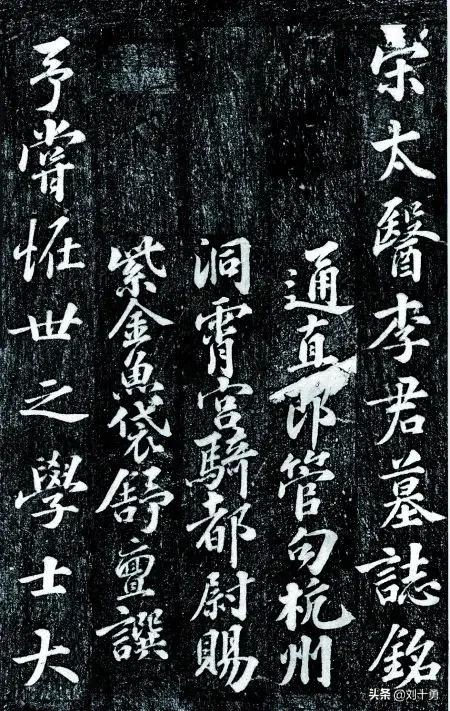 宋太醫李君墓誌銘
通直郎管句杭州
洞霄宫騎都尉賜
紫金魚袋舒亶譔
予嘗恠世之學士大
头条 @刘十勇